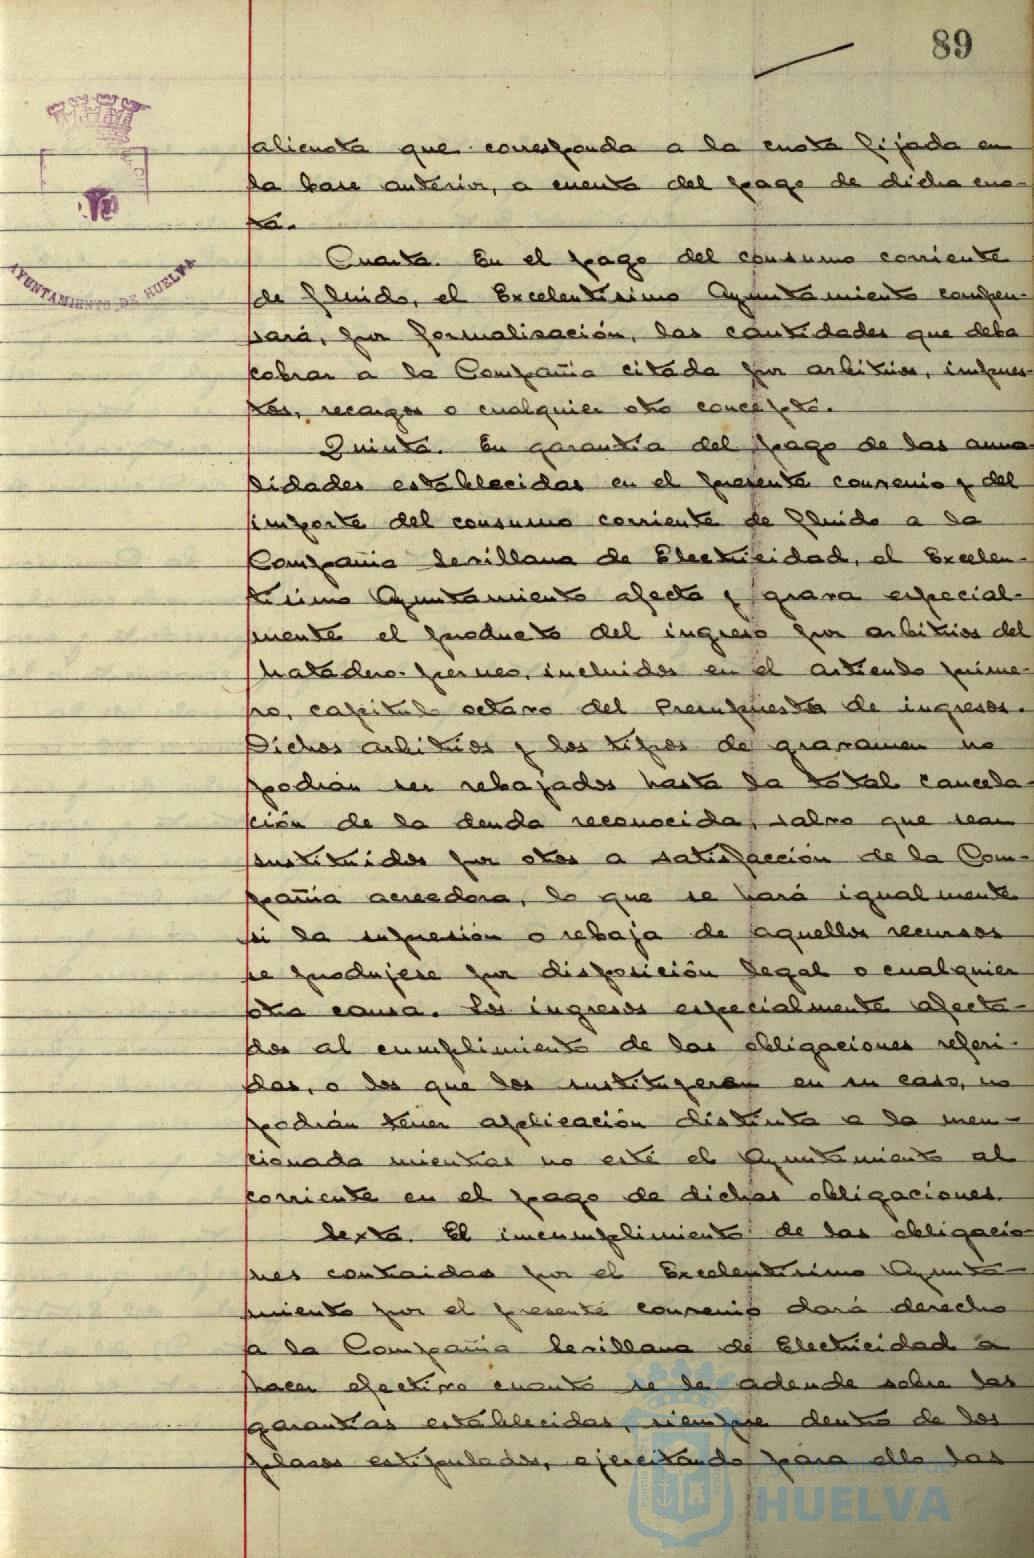 89
AYUNTAMIENTO DE HUELVA
alicuota que corresponda a la cuota fijada en
la base anterior, a cuenta del pago de dicha cuo-
ta.
Cuarta. En el pago del consumo corriente
de fluido, el Excelentísimo Ayuntamiento compen-
sará, por formalización, las cantidades que deba
cobrar a la Compañia citada por arbitrios, impues-
tos, recargos o cualquier otro concepto.
Quinta. En garantía del pago de las anua-
lidades establecidas en el presente convenio y del
importe del consumo corriente de fluido a la
Compañia Sevillana de Electricidad, el Excelen-
tísimo Ayuntamiento afecta y grava especial-
mente el producto del ingreso por arbitrios del
Matadero-perneo, incluidos en el artículo prime-
ro, capitulo octavo del Presupuesto de ingresos.
Dichos arbitrios y los tipos de gravamen no
podrán ser rebajados hasta la total cancela-
ción de la deuda reconocida, salvo que sean
sustituidos por otros a satisfacción de la Com-
pañia acreedora, lo que se hará igualmente
si la supresión o rebaja de aquellos recursos
se produjese por disposición legal o cualquier
otra causa. Los ingresos especialmente afecta-
dos al cumplimiento de las obligaciones referi-
das, o los que los sustituyeran en su caso, no
podrán tener aplicación distinta a la men-
cionada mientras no esté el Ayuntamiento al
corriente en el pago de dichas obligaciones.
Sexta. El incumplimiento de las obligacio-
nes contraidas por el Excelentísimo Ayunta-
miento por el presente convenio dará derecho
a la Compañia Sevillana de Electricidad a
hacer efectivo cuanto se le adeude sobre las
garantías establecidas, siempre dentro de los
plazos estipulados, ejercitando para ello las
Ayuntamiento de
HUELVA